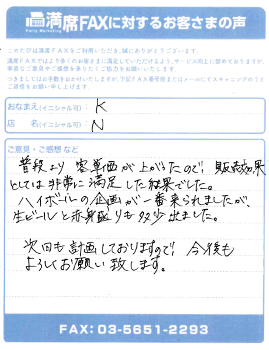 満席FAXに対するお客さまの声
Party Marketing
このたびは満席FAXをご利用いただき、誠にありがとうございます。
満席FAXではより多くのお客さまに満足していただけるよう、サービス向上に努めておりますが、
率直なご意見やご感想を承りたくご協力をお願いいたします。
つきましてはお手数をおかけいたしますが、下記FAX番号宛またはメールにてスキャニングのうえ
ご返信をお願い申し上げます。
おなまえ(イニシャル可) K
店 名(イニシャル可) N
ご意見・ご感想など
普段より客単価が上がったので、販売効果
としては非常に満足した結果でした。
ハイボールの企画が一番来られましたが、
生ビールと赤身盛りも多少出ました。
次回も計画しておりますので、今後も
よろしくお願い致します。
FAX: 03-5651-2293